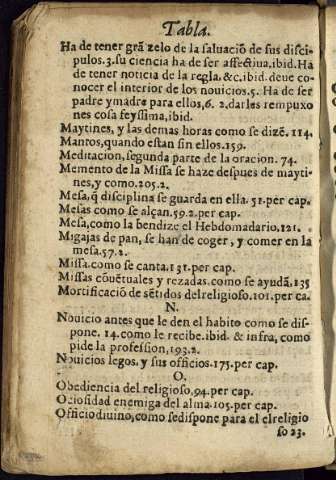 Tabla.
Ha de tener grã zelo de la saluaciõ de sus disci-
pulos.3.su ciencia ha de ser affectiua.ibid.Ha
de tener noticia de la regla.&c.ibid.deue co-
nocer el interior de los nouicios.5. Ha de ser
padre y madre para ellos,6. 2.darles rempuxo
nes cosa feyssima,ibid.
Maytines, y las demas horas como se dizẽ. 114.
Mantos,quando estan sin ellos.159.
Meditacion,segunda parte de la oracion. 74.
Memento de la Missa se haze despues de mayti-
nes,y como.205.2.
Mesa,q̃ disciplina se guarda en ella. 51.per cap.
Mesas como se alçan.59.2.per cap.
Mesa,como la bendize el Hebdomadario,121.
Migajas de pan, se han de coger, y comer en la
mesa.57.2.
Missa.como se canta.131.per cap.
Missas cõuẽtuales y rezadas.como se ayudã.135
Mortificaciõ de sẽtidos del religioso.101.per ca.
N.
Nouicio antes que le den el habito como se dis-
pone. 14.como le recibe.ibid & infra, como
pide la profession,193.2.
Nouicios legos. y sus officios.175.per cap.
O,
Obediencia del religioso,94.per cap.
Ociosidad enemiga del alma.105.per cap.
Officio diuino,como se dispone para el el religio
so 23.